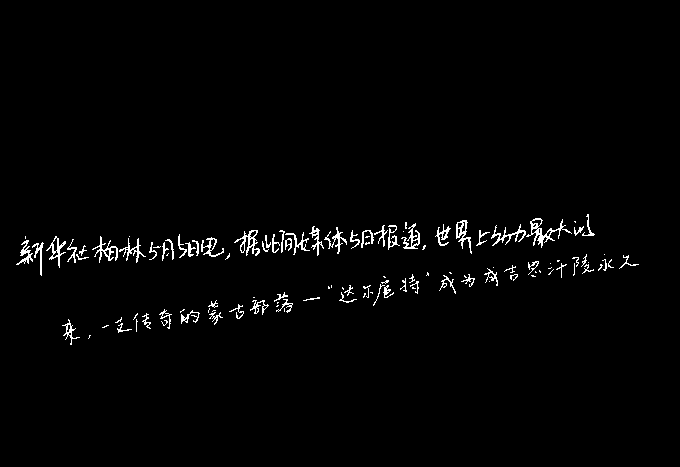 新华社柏林5月5日电,据此间媒体5日报道,世界上功力最大的
来,一支传奇的蒙古部落一“达尔扈特”成为成吉思汗陵永久